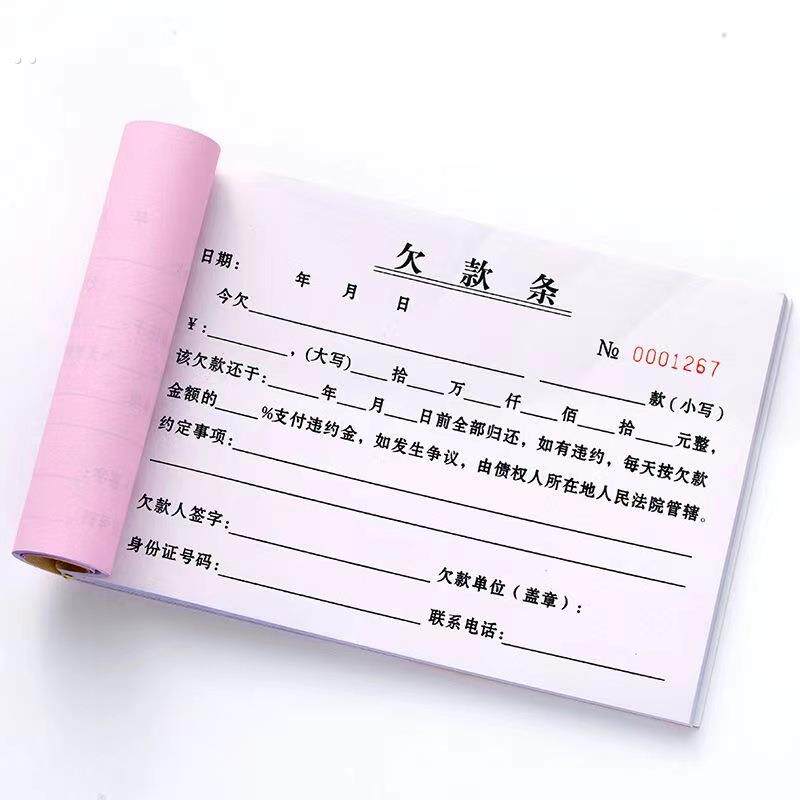 欠款条
日期： 年 月 日
№ 0001267
今欠____________ ____________款（小写）
￥：________，(大写)___拾___万___仟___佰___拾___元整，
该欠款还于：_____年___月___日前全部归还，如有违约，每天按欠款
金额的____%支付违约金，如发生争议，由债权人所在地人民法院管辖。
约定事项：____________
欠款人签字：____________ 欠款单位（盖章）：
身份证号码：____________ 联系电话：____________